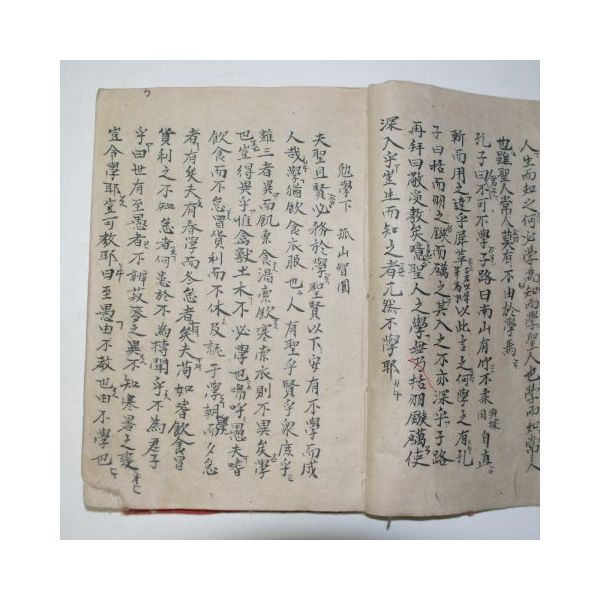 人生而知之何必學爲知而學聖人也學而知常人
也雖聖人常人莫有不由於學焉
孔子曰不可不學子路曰南山有竹不柔自直
斬而用之達乎犀革以此言之何學之有孔
子曰括而羽之鏃而礪之其入之不亦深乎子路
再拜曰敬受教矣噫聖人之學無乃括羽鏃礪使
深入乎豈生而知之者兀然不學耶
勉學下 孤山智圓
夫聖且賢必務於學聖賢以下安有不學而成
人哉學猶飲食衣服也人有聖乎賢乎衆庶乎
雖三者異而飢索食渴索飲寒索衣則不異矣學
也豈得異乎惟禽獸土木不必學也嗚呼愚夫嗜
飲食而不怠冒貨利而不休及就于學朝而夕怠
者有矣夫有春學而冬怠者矣夫苟如嗜飲食冒
貨利之不知怠者何患於不爲博聞乎不爲君子
乎曰世有至愚者不辨菽麥之異不知寒暑之變
豈令學耶豈可教耶曰至愚由不教也由不學也